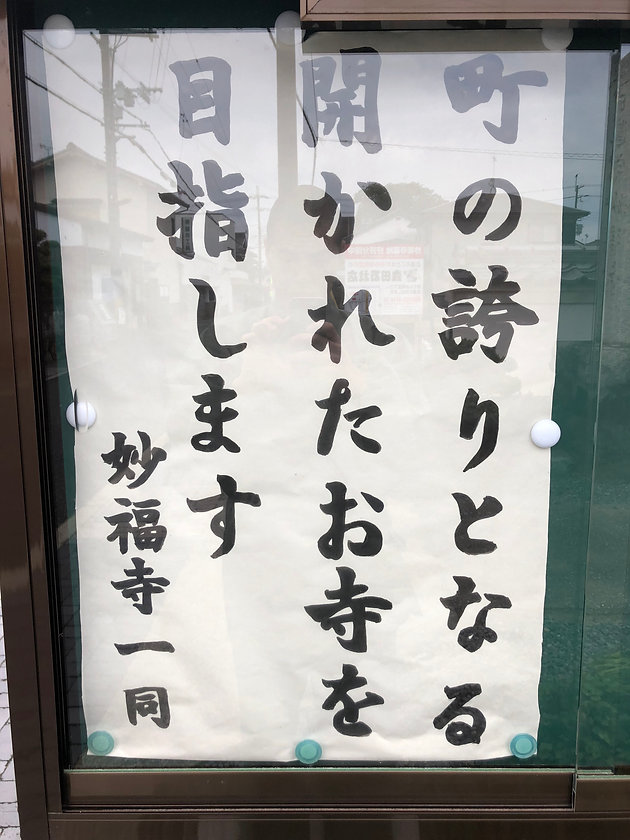 町の誇りとなる
開かれたお寺を
目指します
妙福寺一同